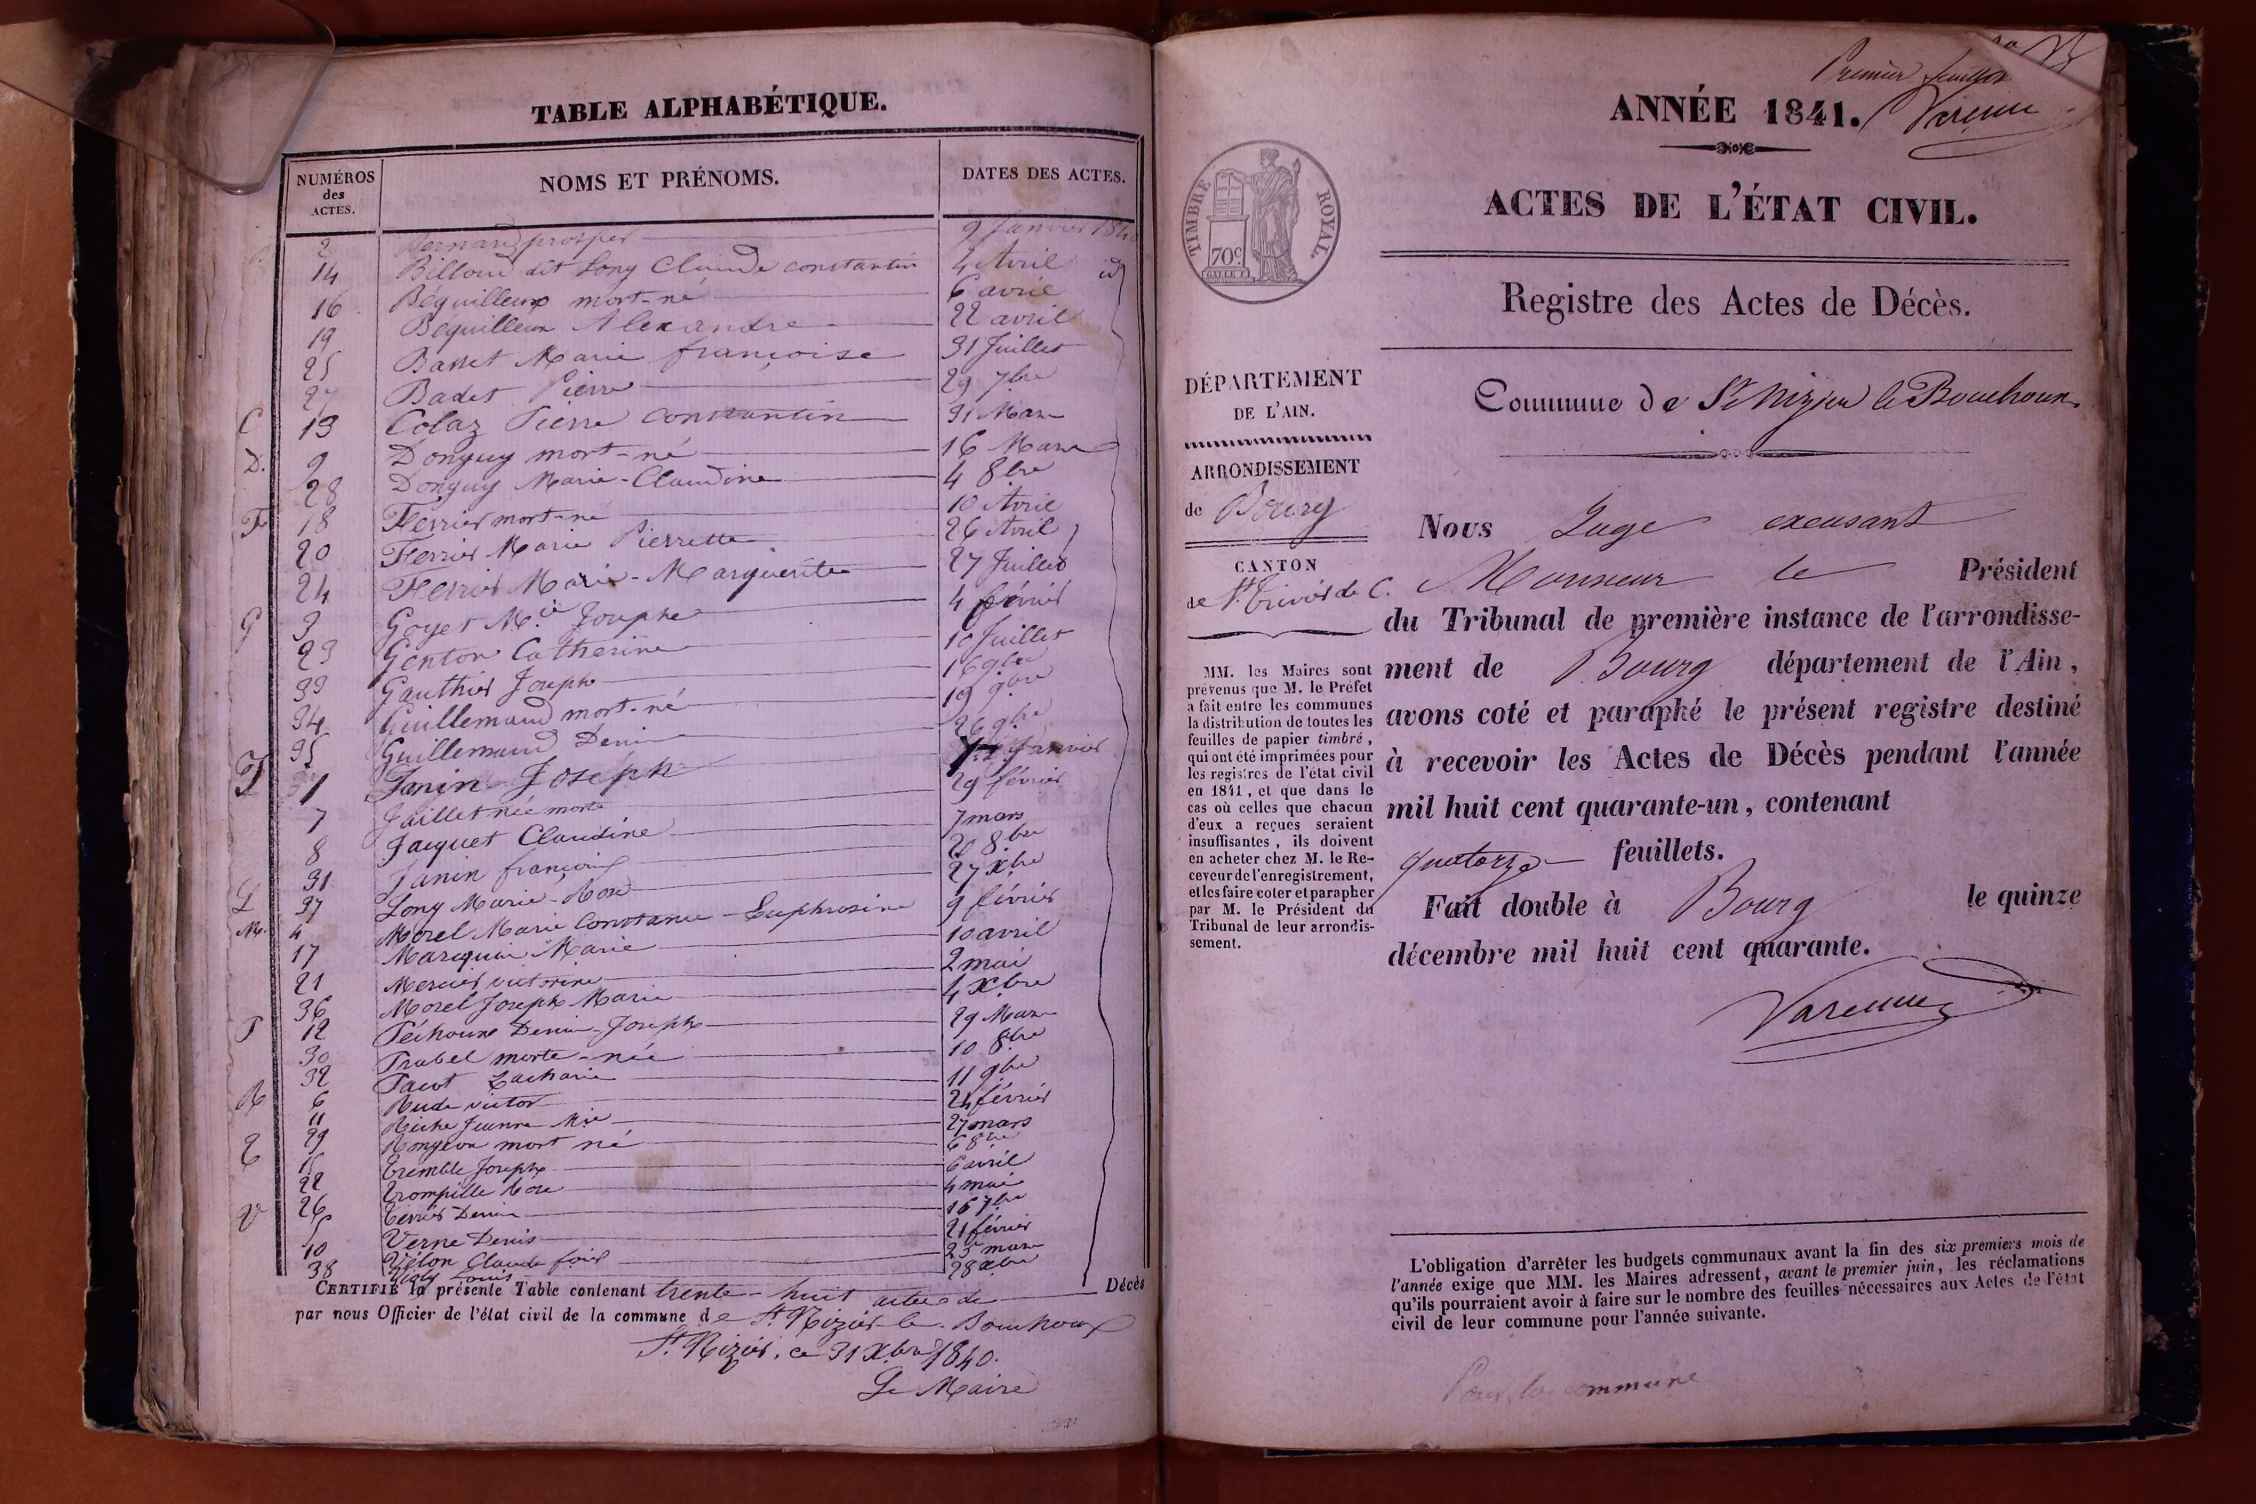 TABLE ALPHABÉTIQUE.
NUMÉROS des ACTES. NOMS ET PRÉNOMS. DATES DES ACTES.
2 Bernard prosper 9 Janvier 1840
14 Billoud dit Lony Claude constantin 4 Avril id
16 Béguilleux mort-né 6 avril
19 Beguilleux Alexandre 22 avril
25 Basset Marie françoise 31 Juillet
27 Badet Pierre 29 7bre
C 13 Colaz Pierre Constantin 31 Mars
D. 9 Donguy mort-né 16 Mars
28 Donguy Marie-Claudine 4 8bre
F 18 Ferrier mort-né 10 Avril
20 Ferrier Marie Pierrette 26 Avril
24 Ferrier Marie-Marguerite 27 Juillet
G 3 Goyet Mie Josephe 4 février
23 Genton Catherine 10 Juillet
33 Gauthier Joseph 16 9bre
34 Guillemaud mort-né 19 9bre
35 Guillemaud Denis 26 9bre
J 1 Janin Joseph Janvier
7 Jaillet née morte 29 février
8 Jacquet Claudine 7 mars
31 Janin françois 20 8bre
L 37 Lony Marie-Rose 27 Xbre
M. 4 Morel Marie Constance-Euphrosine 9 février
17 Marie 10 avril
21 Mercier victorine 2 mai
36 Morel Joseph Marie 4 Xbre
P 12 Péchoux Denis-Joseph 29 Mars
30 Prabel morte-née 10 8bre
32 Pacot Zacharie 11 9bre
R 6 Rude victor 24 février
11 Riche Jeanne Mie 27 mars
29 Rongeon mort né 6 8bre
T 15 Tremble Joseph 6 avril
22 Trompille Rose 4 mai
26 Terrier Denis 16 7bre
V 5 Verne Denis 21 février
10 Vélon Claude 25 mars
38 Louis 28 xbre
CERTIFIÉ la présente Table contenant trente-huit actes de Décès
par nous Officier de l'état civil de la commune de St. Nizier-le-Bouchoux
St. Nizier, ce 31 Xbre 1840.
Le Maire
Premier feuillet
Varenne
ANNÉE 1841.
ACTES DE L'ÉTAT CIVIL.
Registre des Actes de Décès.
TIMBRE ROYAL.
70c
DÉPARTEMENT
DE L'AIN.
ARRONDISSEMENT
de Bourg
CANTON
de St. Trivier de C.
MM. les Maires sont
prévenus que M. le Préfet
a fait entre les communes
la distribution de toutes les
feuilles de papier timbré,
qui ont été imprimées pour
les registres de l'état civil
en 1841, et que dans le
cas où celles que chacun
d'eux a reçues seraient
insuffisantes, ils doivent
en acheter chez M. le Re-
ceveur de l'enregistrement,
et les faire coter et parapher
par M. le Président du
Tribunal de leur arrondis-
sement.
Commune de St Nizier le Bouchoux
Nous Juge excusant
Monsieur le Président
du Tribunal de première instance de l'arrondisse-
ment de Bourg département de l'Ain,
avons coté et paraphé le présent registre destiné
à recevoir les Actes de Décès pendant l'année
mil huit cent quarante-un, contenant
quatorze feuillets.
Fait double à Bourg le quinze
décembre mil huit cent quarante.
Varenne
L'obligation d'arrêter les budgets communaux avant la fin des six premiers mois de
l'année exige que MM. les Maires adressent, avant le premier juin, les réclamations
qu'ils pourraient avoir à faire sur le nombre des feuilles nécessaires aux Actes de l'état
civil de leur commune pour l'année suivante.
Pour la commune